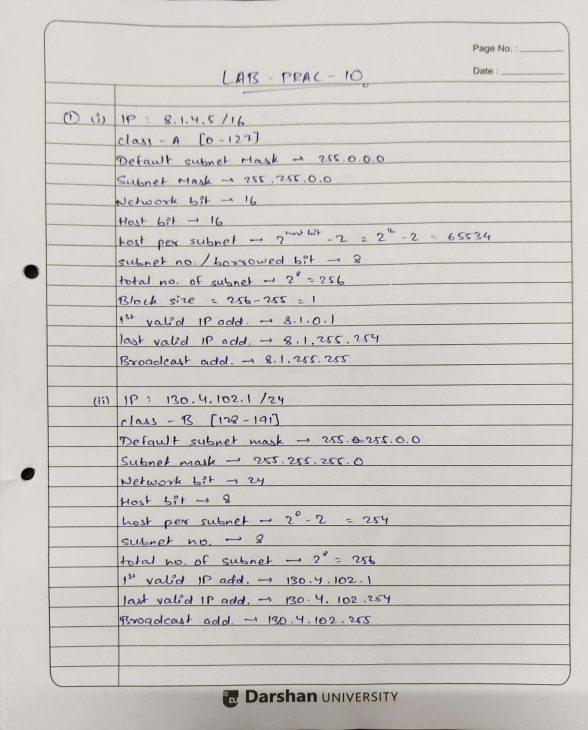 Page No. :
Date :
LAB - PRAC - 10
① (i) IP : 8.1.4.5 /16
class - A [0-127]
Default subnet Mask → 255.0.0.0
Subnet Mask → 255.255.0.0
Network bit → 16
Host bit → 16
host per subnet → 2^host bit - 2 = 2^16 - 2 = 65534
subnet no. / borrowed bit → 8
total no. of subnet → 2^8 = 256
Block size = 256-255 = 1
1st valid IP add. → 8.1.0.1
last valid IP add. → 8.1.255.254
Broadcast add. → 8.1.255.255
(ii) IP : 130.4.102.1 /24
class - B [128-191]
Default subnet mask → 255.255.0.0
Subnet mask → 255.255.255.0
Network bit → 24
Host bit → 8
host per subnet → 2^8 - 2 = 254
subnet no. → 8
total no. of subnet → 2^8 = 256
1st valid IP add. → 130.4.102.1
last valid IP add. → 130.4.102.254
Broadcast add. → 130.4.102.255
Darshan UNIVERSITY